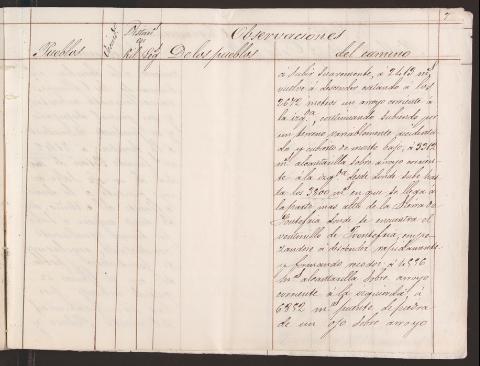 7
Observaciones
Pueblos
Kil Leg
De los pueblos
del camino
á subir suavemente, á 2413 mˢ
vuelve á descender saltando á los
2672 metros un arroyo corriente á
la izqᵈᵃ, continuando subiendo por
un terreno notablemente accidenta
do y cubierto de monte bajo, á 3312
mˢ alcantarilla sobre arroyo corrien
te á la izqᵈᵃ desde donde sube has
ta los 3800 mˢ en que se llega á
la parte mas alta de la Sierra de
donde se encuentra el
ventorrillo de empe
zandose á descender rapidamente
y formando recodos, á 4896
mˢ alcantarilla sobre arroyo
corriente á la izquierda, á
6852 mˢ puente de piedra
de un ojo sobre arroyo